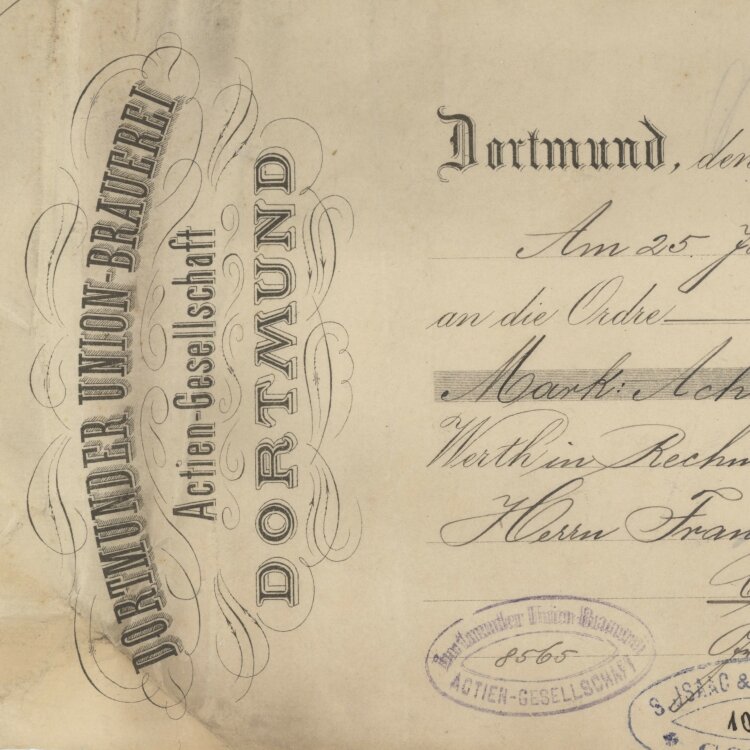 DORTMUNDER UNION-BRAUEREI
Actien-Gesellschaft
DORTMUND
Dortmund, den
Am 25.
an die Ordre
Mark: Ach
Werth in Rechn
Herrn Fran
Dortmunder Union-Brauerei
8565
ACTIEN-GESELLSCHAFT
S. ISAAC &
10